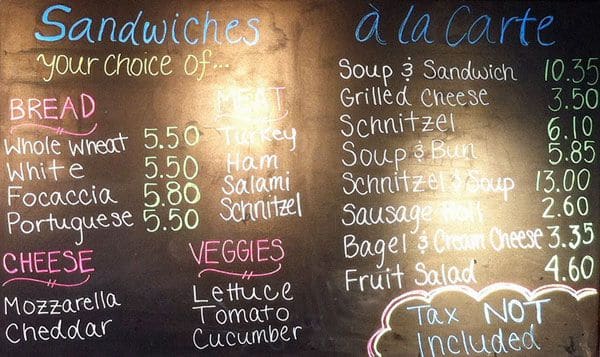 Sandwiches
your choice of...
BREAD
Whole Wheat 5.50
White 5.50
Focaccia 5.80
Portuguese 5.50
MEAT
Turkey
Ham
Salami
Schnitzel
CHEESE
Mozzarella
Cheddar
VEGGIES
Lettuce
Tomato
Cucumber
à la Carte
Soup & Sandwich 10.35
Grilled Cheese 3.50
Schnitzel 6.10
Soup & Bun 5.85
Schnitzel & Soup 13.00
Sausage Roll 2.60
Bagel & Cream Cheese 3.35
Fruit Salad 4.60
Tax NOT
Included